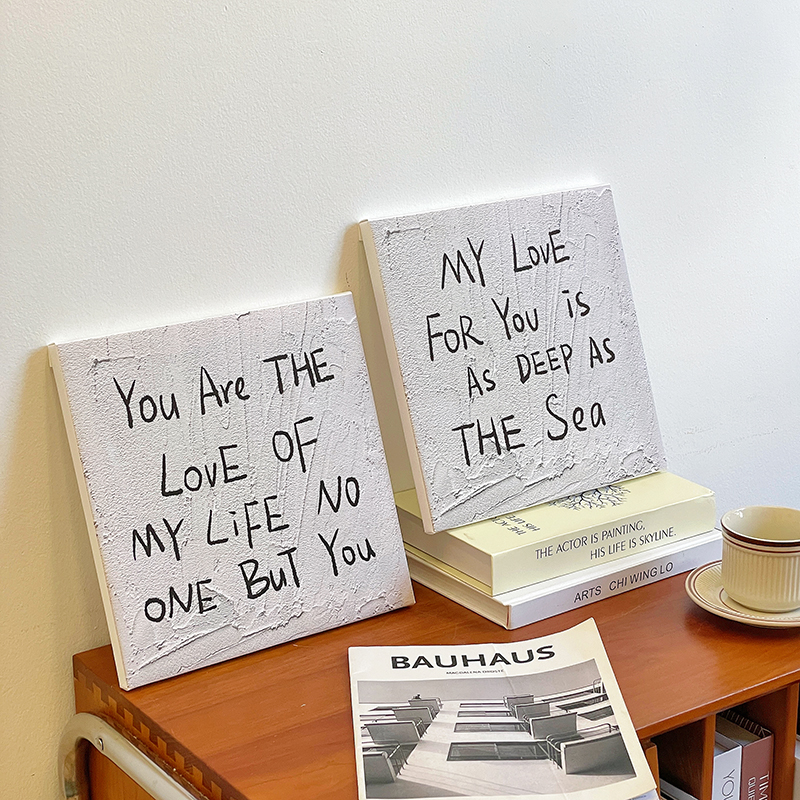 You Are THE
LOVE OF
MY LiFE NO
ONE BUT You
MY LovE
FOR You is
AS DEEP AS
THE Sea
THE ACTOR IS PAINTING,
HIS LIFE IS SKYLINE.
ARTS CHI WING LO
BAUHAUS
YOU